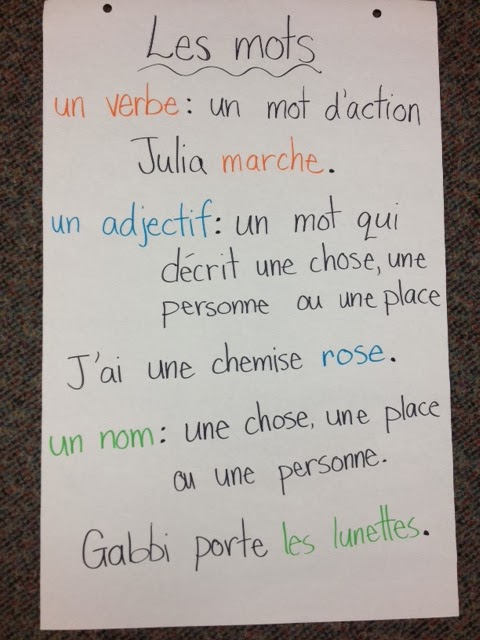 Les mots
un verbe: un mot d'action
Julia marche.
un adjectif: un mot qui
décrit une chose, une
personne ou une place
J'ai une chemise rose.
un nom: une chose, une place
ou une personne.
Gabbi porte les lunettes.